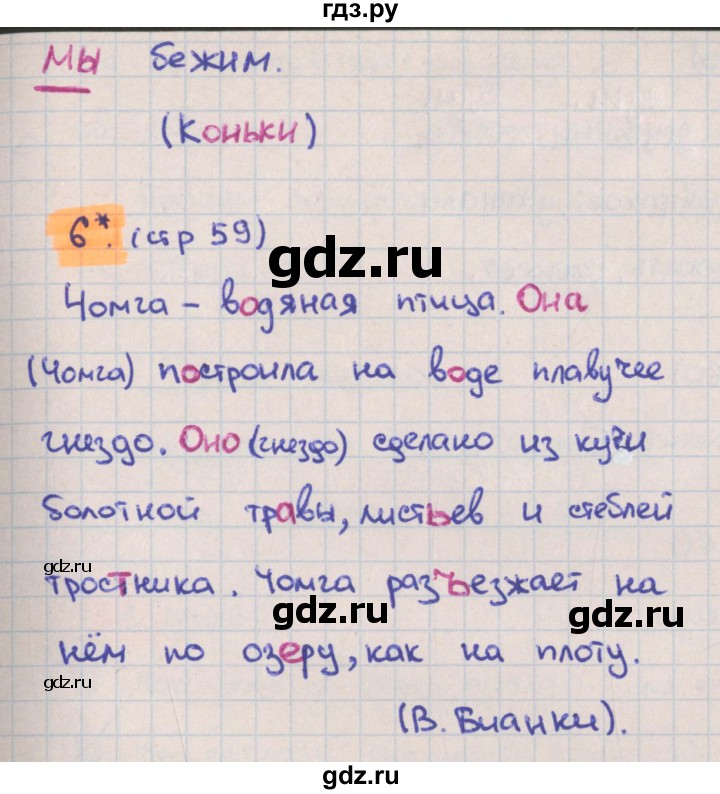 гдз.ру
Мы бежим.
(Коньки)
6*. (стр 59)
gdz.ru
Чомга – водяная птица. Она
(Чомга) построила на воде плавучее
гнездо. Оно (гнездо) сделано из кучи
болотной травы, листьев и стеблей
gdz.ru
тростника. Чомга разъезжает на
gdz.ru
gdz.ru
нём по озеру, как на плоту.
gdz.ru
(В. Бианки).
gdz.ru